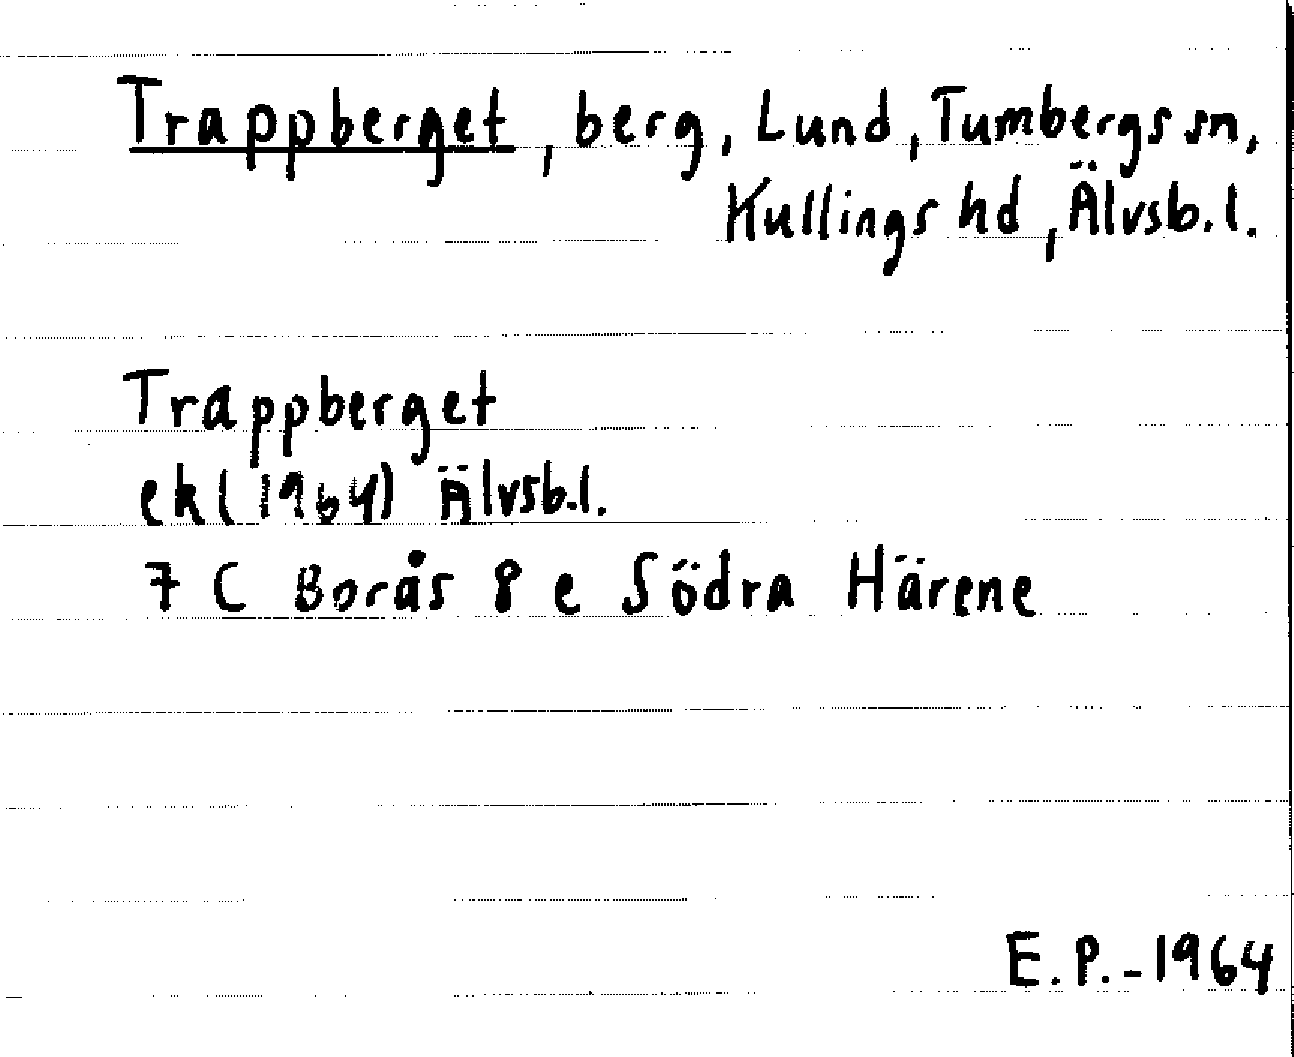 Trappberget, berg, Lund, Tumbergs sn,
Kullings hd, Älvsb.l.
Trappberget
ek(1964) Älvsb.l.
7 C Borås 8 e Södra Härene
E.P.-1964